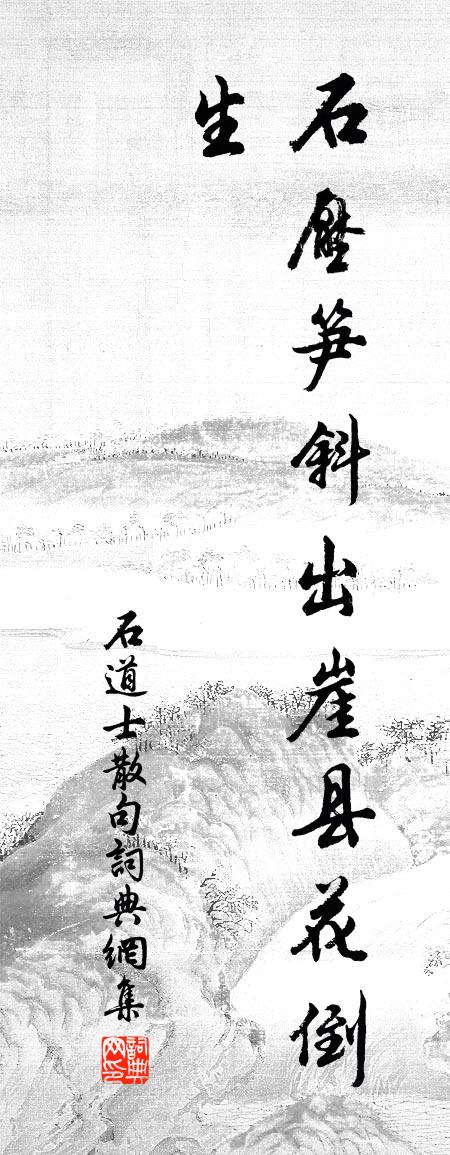 石壓笋斜出崖县花倒
生
石道士散句詞典網集
詞典网印